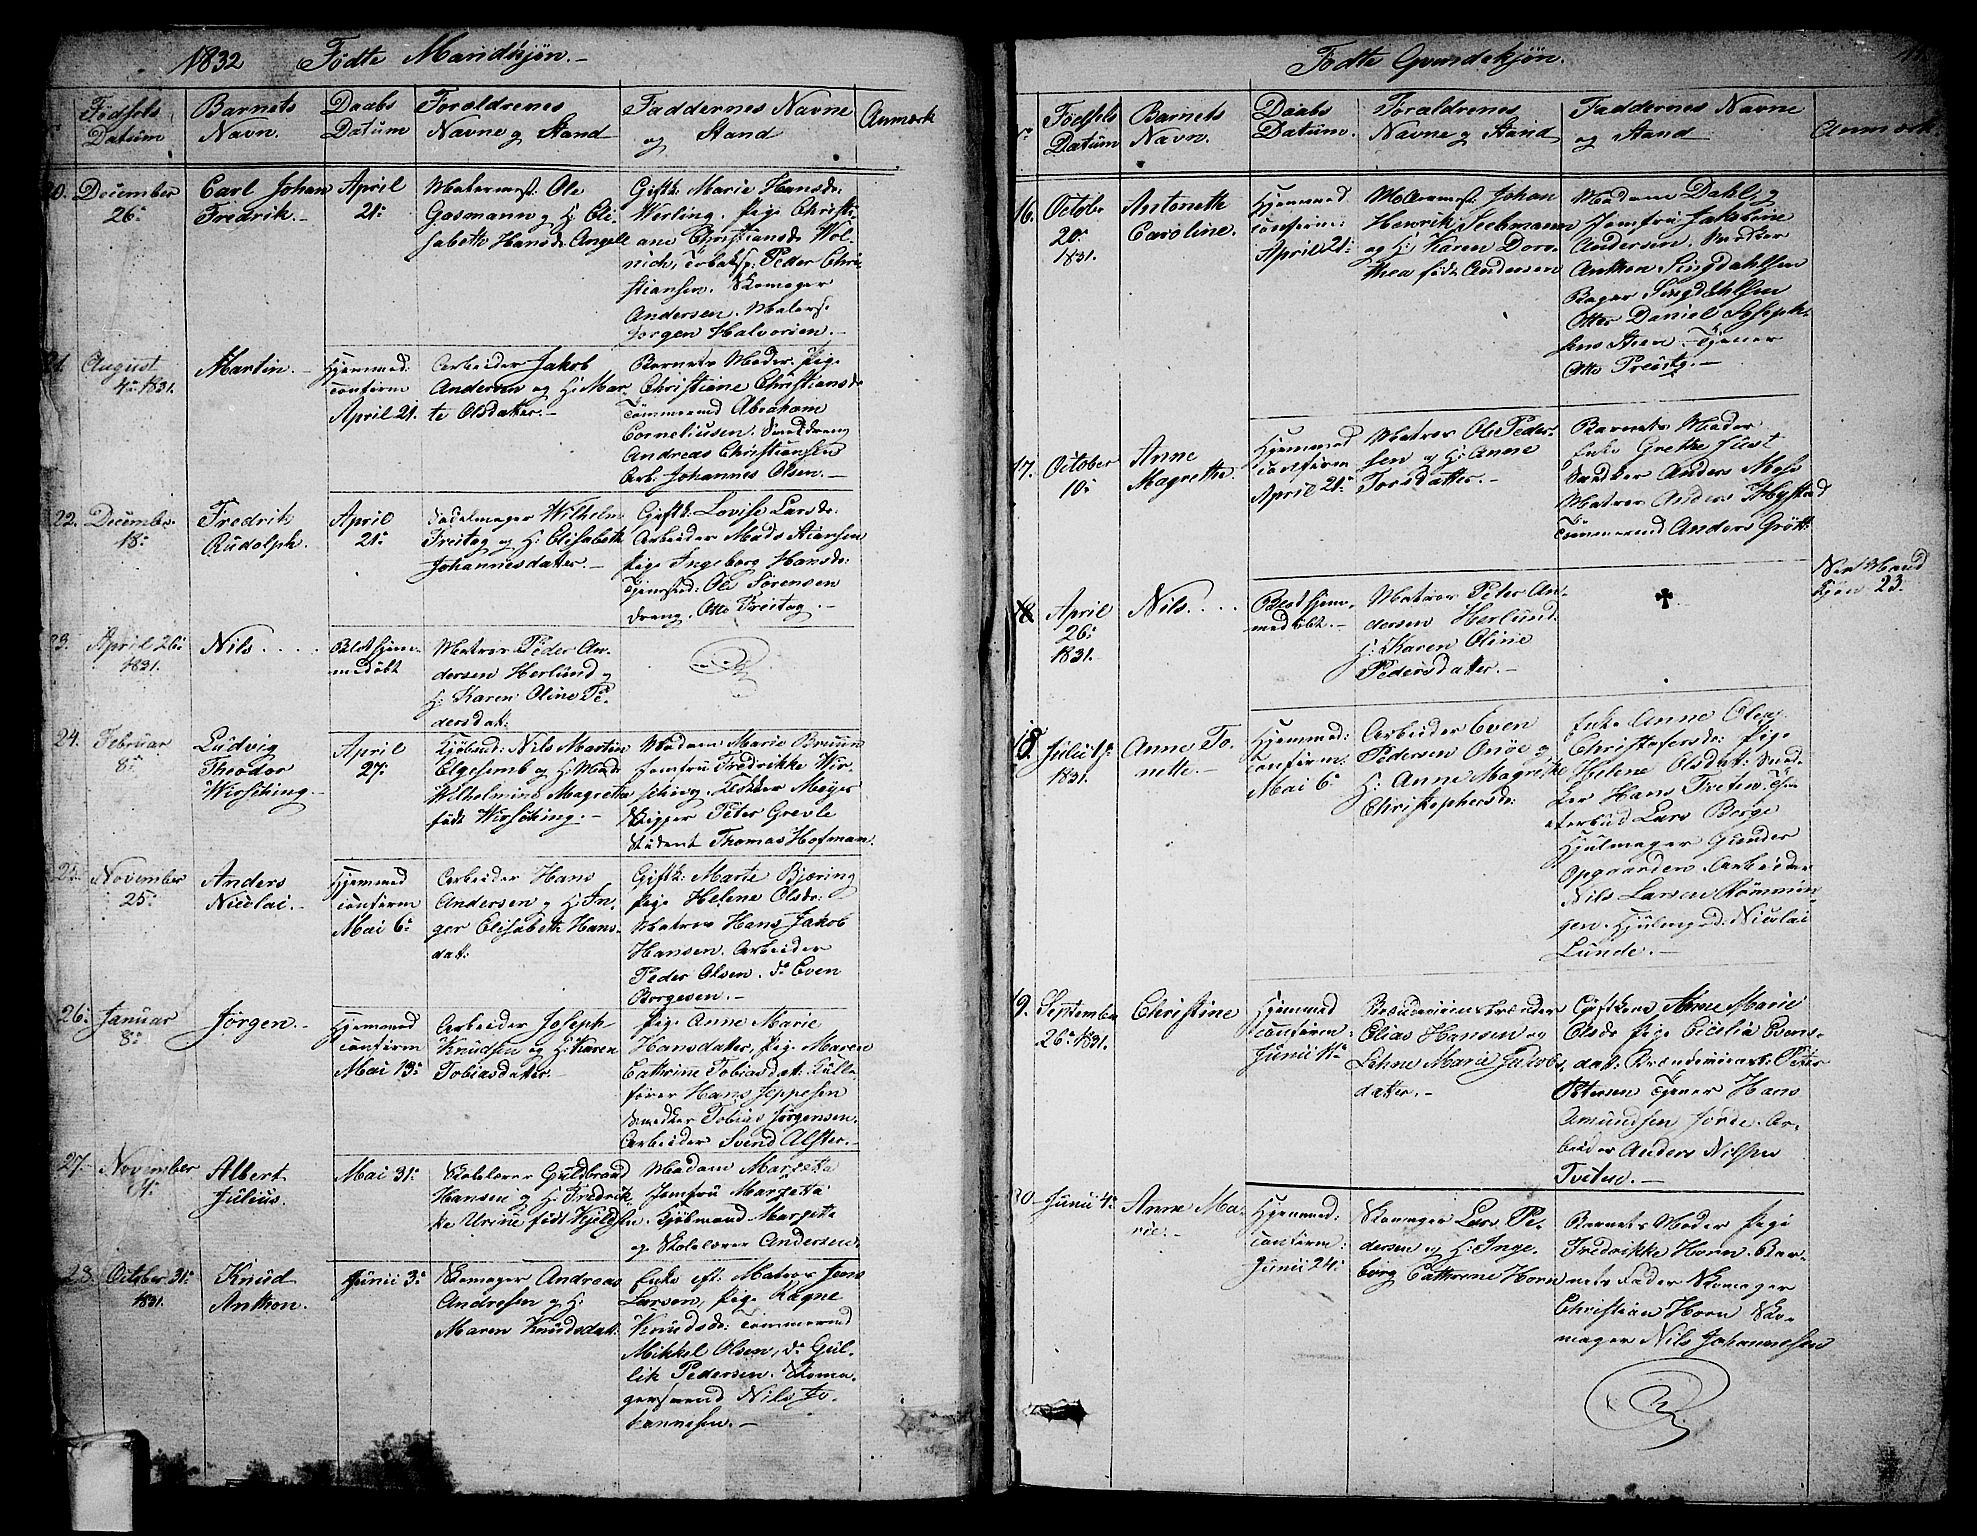 1832 Födte Mandkjön.-
Födsels Datum
Barnets Navn.
Daabs Datum
Forældrenes Navne og Stand
Faddernes Navne og Stand
Anmærk
20.
December
26:
Carl Johan
Fredrik.-
April
21:
Gasmann og H: Eli-
sabeth Hansd: Angell
Giftk: Marie Hansdr:
Werling. Pige Christi-
ane Christiansdr
Peder Chri-
stiansen. Skomager
Andersen.
Jörgen Halvorsen.-
21.
August
4: 1831.
Martin.-
Hjemmed:
confirm
April 21.
Arbeider Jakob
Andersen og H: Mar-
te Olsdatter.-
Barnets Moder. Pige
Christiane Christiansdr
Tömmermd Abraham
Corneliusen.
Andreas Christiansen
Arb. Johannes Olsen.-
22.
December
18:
Fredrik
Rudolph.
April
21:
Sadelmager Wilhelm
Freitag og H: Elisabeth
Johannesdatter.-
Giftk: Lovise Larsdr:
Arbeider Mads
Pige Ingeborg Hansdr:
Ole Sörensen
dreng. Otto Freitag.-
23.
April 26:
1831.
Nils....
Blot hjem-
medöbt
Matros Peder An-
dersen Herlund og
H: Karen Oline Pe-
dersdat:
24.
Februar
8:
Ludvig
Theodor
Wirsching.
April
27:
Kjöbmd: Nils Martin
og H: Mad
Wilhelmine Magretha
födt Wirsching.-
Madam Marie Bruun
Jomfru Fredrikke Wir-
sching. Meÿer
Skipper Peter Grevle
Student Thomas Hofman.
25.
November
25:
Anders
Nicolai.-
Hjemmed
confirm
Mai 6:
Arbeider Hans
Andersen og H: In-
ger Elisabeth Hans-
dat:
Giftk: Marte Bjæring
Pige Helene Olsdr:
Matros Hans Jakob
Hansen. Arbeider
Peder Olsen. do Even
Borgesen.-
26:
Januar
8:
Jörgen.-
Hjemmed
confirm
Mai 13:
Arbeider Joseph
Knudsen og H: Karen
Tobiasdatter.-
Pige Anne Marie
Hansdatter, Pige Maren
Cathrine Tobiasdat: Kull-
förer Hans Jeppesen
Snedker Tobias Jörgensen.
Arbeider Svend Alster.-
27.
November
14:
Albert
Julius.
Mai 31:
Skolelærer Guldbrand
Hansen og H: Fredrik-
ke Urine födt
Madam Margetta
Jomfru Margetta
Kjöbmand Margetta
og Skolelærer Andersen
28.
October 31:
1831.
Knud
Anthon.
Junii 3:
Skomager Andreas
Andresen og H:
Maren Knudsdat:
Enke eft: Matros Jens
Larsen, Pige Ragne
Knudsdr: Tömmermd
Mikkel Olsen, do Gul-
lik Pedersen. Skoma-
gersvend Nils Jo-
hannesen.-
Födte Qvindekjön.
Födsels Datum
Barnets Navn.
Daabs Datum.
Forældrenes Navne og Stand
Faddernes Navne og Stand
Anmærk.
16.
Octobr
20:
1831.
Antonette
Caroline.
Hjemmed
confirm:
April 21:
Johan
Henrik Seehmann
og H: Karen Doro-
thea föd: Andersen
Madam Dahl og
Jomfru Jakobine
Andersen. Snedker
Anthon Singdahlsen
Bager Singdahlsen
Otter Daniel Joseph-
sens Steen. Tjener
Otto Freitag.-
17.
October
10:
Anne
Magrethe.
Hjemmed
confirm
April 21:
Matros Ole Peder-
sen og H: Anne
Torsdatter.-
Barnets Moder
Enke Grethe Just
Snedker Anders Moe
Matros Anders
Tömmermd Anders Gröth:
18
April
26:
1831.
Nils....
Blot hjem-
medöbt.-
Matros Peter An-
dersen Herlund
H: Karen Oline
Pedersdatter.-
✝
Ved Mand
Kjön 23.
18.
Julii
1831.
Anne To-
nette.-
Hjemmed:
confirm.
Mai 6:
Arbeider Even
Pedersen og
H: Anne Magrethe
Christophersdr:
Enke Anne Olea
Christofersdr: Pige
Helene Olsdat: Sned-
ker Hans Treten.
Lars Berge
Hjulmager Gunder
Opgaarden. Arbeider
Nils Larsen Römmin-
gen. Hjulmagrd: Nicolai
Lunde.-
19.
September
26: 1831.
Christine
Hjemmed
confirm:
Junii 11:
Elias Hansen og
Lehne Marie Jakobs-
datter.-
Giftkone Anne Marie
Olsdr Pige Cicelia Evens-
dat: Peter
Petersen Tjener Hans
Amundsen Ar-
beider Anders Nilsen
Tveten.-
20.
Junii 4:
Anne Ma-
rie.-
Hjemmed:
confirm:
Junii 24:
Skomager Lars Pe-
dersen og H: Inge-
borg Cathrine Horn
Barnets Moder Pige
Fredrikke Horn. Bar-
nets Fader Skomager
Christian Horn Sko-
mager Nils Johannesen